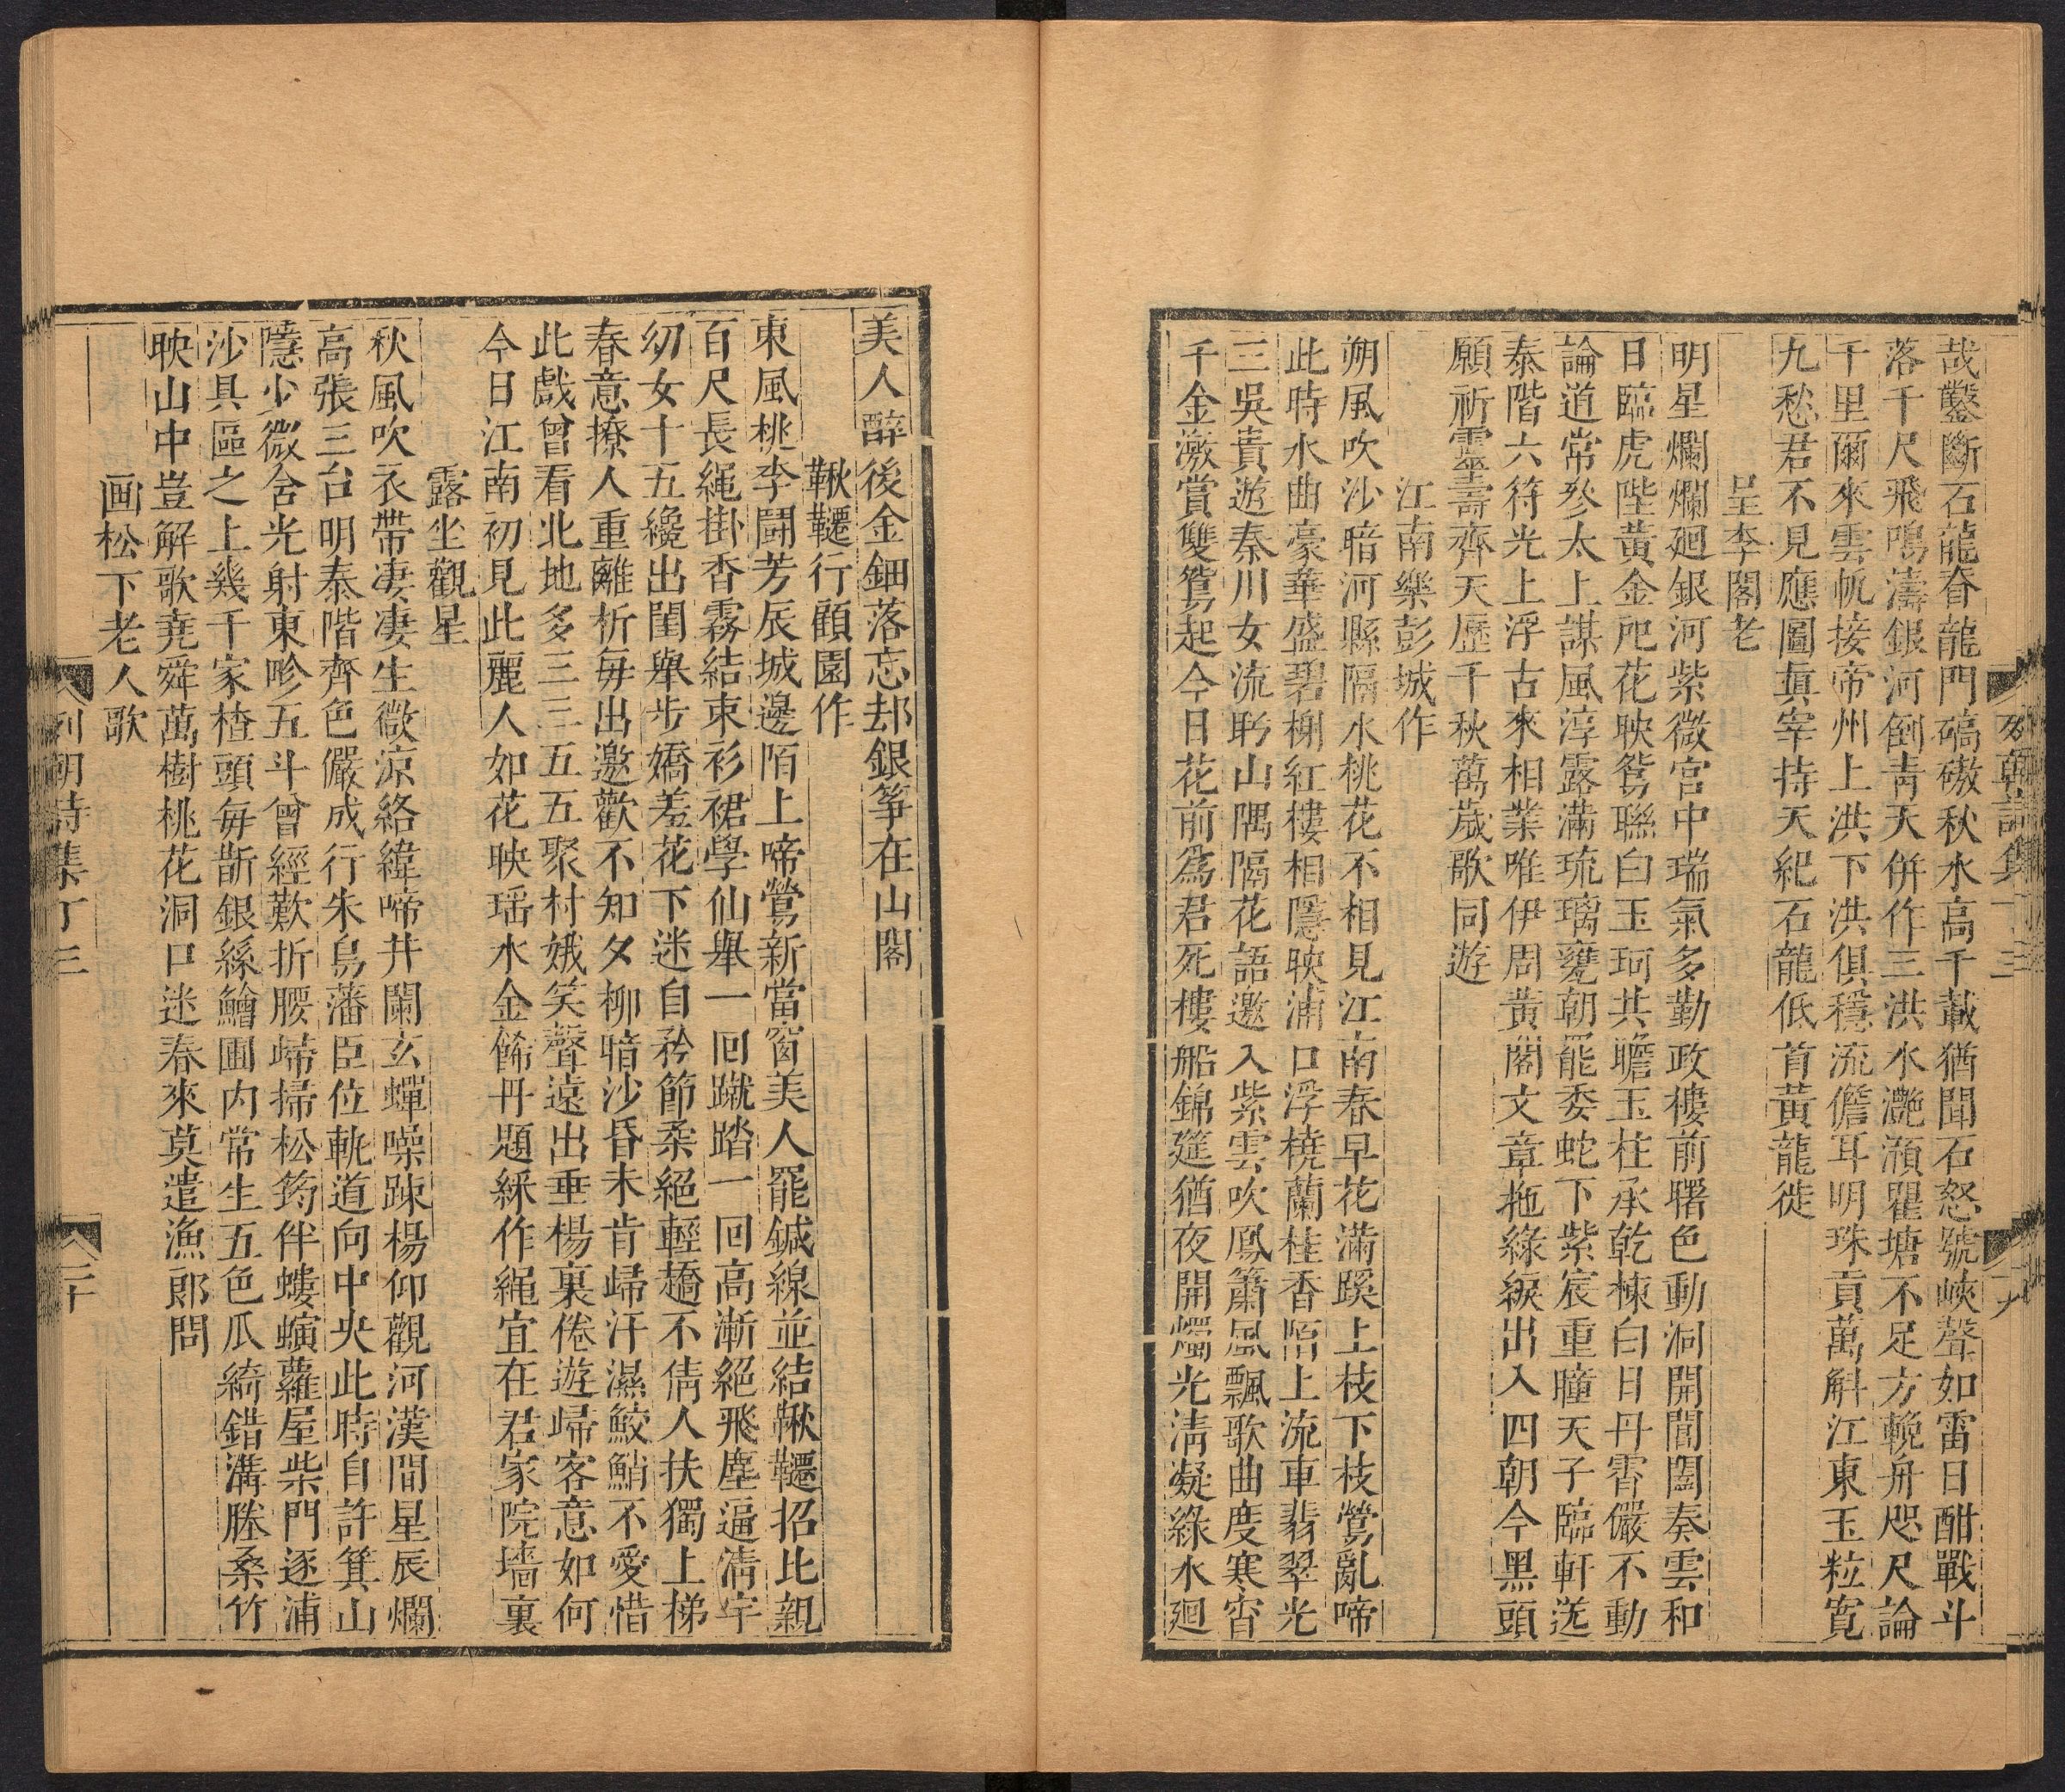 哉鑿斷石龍脊龍門磝磝秋水高千載猶聞石怒號峽聲如雷日酣戰斗
落千尺飛鳴濤銀河倒靑天併作三洪水灔澦瞿塘不足方輓舟咫尺論
千里爾來雲帆接帝州上洪下洪俱穩流儋耳明珠貢萬斛江東玉粒寛
九愁君不見應圖眞宰持天紀石龍低首黃龍徙
呈李閣老
明星爛爛廻銀河紫微宮中瑞氣多勤政樓前曙色動洞開閶闔奏雲和
日臨虎陛黃金戺花映鴛聯白玉珂共瞻玉柱承乾棟白日丹霄儼不動
論道常參太上謀風淳露滿琉璃甕朝罷委蛇下紫宸重瞳天子臨軒送
泰階六符光上浮古來相業唯伊周黃閣文章拖綠綟出入四朝今黑頭
願祈靈壽齊天歷千秋萬歲歌同遊
江南樂彭城作
朔風吹沙暗河縣隔水桃花不相見江南春早花滿蹊上枝下枝鶯亂啼
此時水曲豪華盛碧榭紅樓相隱映浦口浮橈蘭桂香陌上流車翡翠光
三吳貴遊秦川女流眄山隅隔花語邀入紫雲吹鳳簫風飄歌曲度寒宵
千金激賞雙鴛起今日花前爲君死樓船錦筵猶夜開燭光淸凝綠水廻
美人醉後金鈿落忘却銀箏在山閣
鞦韆行顧園作
東風桃李鬪芳辰城邊陌上啼鶯新當窗美人罷鍼線並結鞦韆招比親
百尺長繩掛杏霧結束衫裙學仙舉一回蹴踏一回高漸絕飛塵逼淸宇
幼女十五纔出閨舉步嬌羞花下迷自矜節柔絕輕趫不倩人扶獨上梯
春意撩人重離析每出邀歡不知夕柳暗沙昏未肯歸汗濕鮫鮹不愛惜
此戲曾看北地多三三五五聚村娥笑聲遠出垂楊裏倦遊歸客意如何
今日江南初見此麗人如花映瑤水金餙丹題綵作繩宜在君家院墻裏
露坐觀星
秋風吹衣帶凄凄生微凉絡緯啼井闌玄蟬噪踈楊仰觀河漢間星辰爛
高張三台明泰階齊色儼成行朱鳥藩臣位軌道向中央此時自許箕山
隱少微舍光射東畛五斗曾經歎折腰歸掃松筠伴螻螾蘿屋柴門逐浦
沙具區之上幾千家楂頭每斮銀絲鱠圃內常生五色瓜綺錯溝塍桑竹
映山中豈解歌堯舜萬樹桃花洞口迷春來莫遣漁郎問
画松下老人歌
列朝詩集丁三
二十
列朝詩集丁三
十九